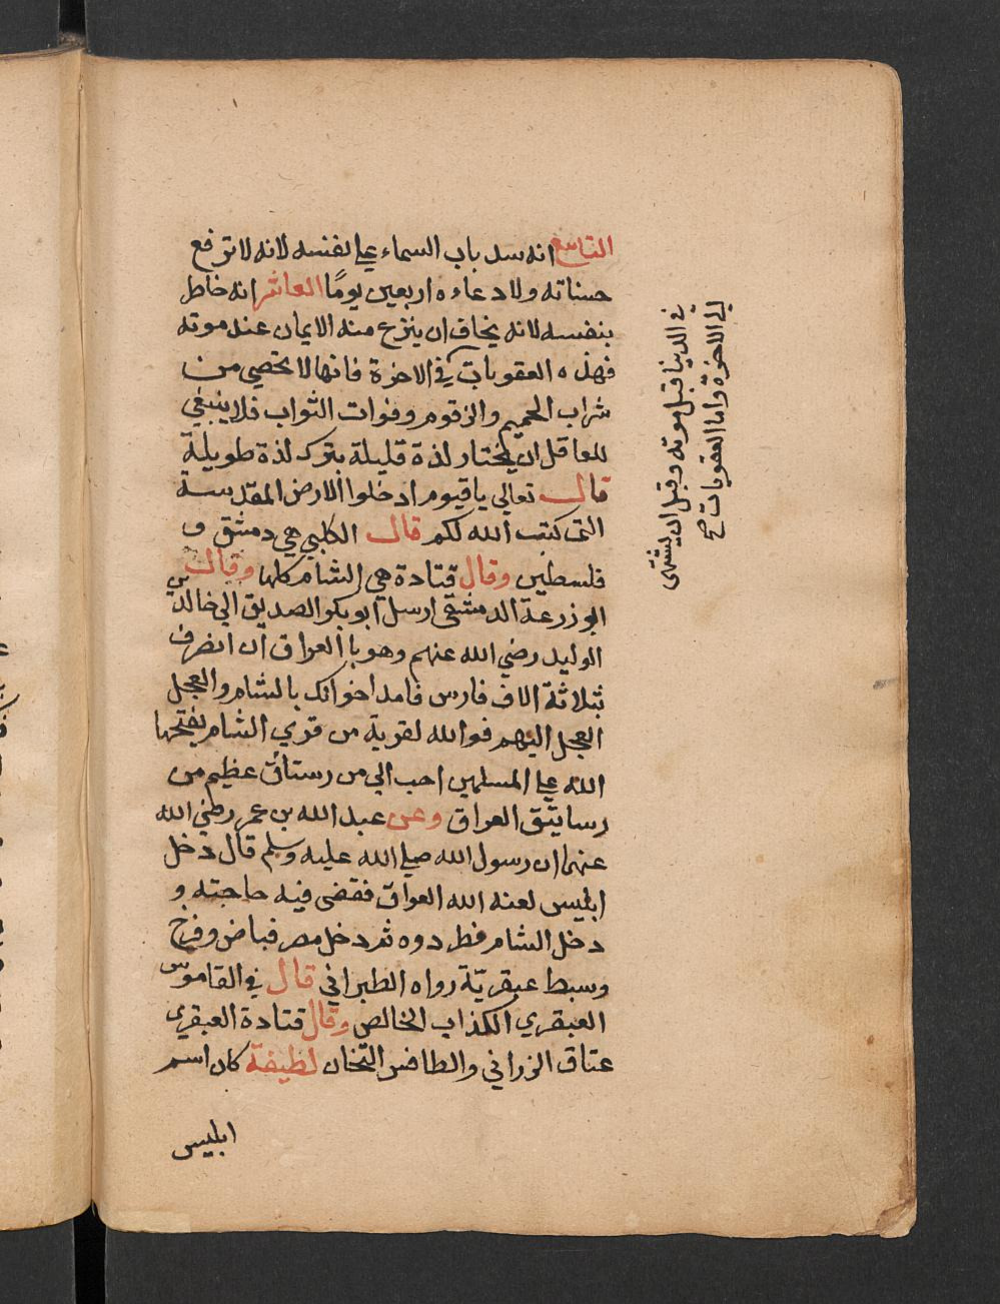 التاسع انه سد باب السماء على نفسه لانه لا ترفع
حسناته ولا دعاءه اربعين يومًا العاشر انه خاطر
بنفسه لانه يخاف ان ينزع منه الايمان عند موته
فهذه العقوبات في الاخرة فانها لا تحصي من
شراب الحميم والزقوم وفوات الثواب فلا ينبغي
للعاقل ان يختار لذة قليلة بترك لذة طويلة
قال تعالي يا قيوم ادخلوا الارض المقدسة
التي كتب الله لكم قال الكلبي هي دمشق و
فلسطين وقال قتادة هي الشام كلها وقال
ابو زرعة الدمشقي ارسل ابو بكر الصديق الي خالد بن
الوليد رضي الله عنهم وهو بالعراق ان انصرف
بثلاثة الاف فارس فامد اخوانك بالشام والعجل
العجل اليهم فوالله لقرية من قري الشام يفتحها
الله على المسلمين احب الي من رستاق عظيم من
رساتيق العراق وعن عبد الله بن عمر رضي الله
عنهما ان رسول الله صلي الله عليه وسلم قال دخل
ابليس لعنه الله العراق فقضى فيه حاجته و
دخل الشام فطردوه ثم دخل مصر فباض وفرخ
وبسط عبقريّة رواه الطبراني قال في القاموس
العبقري الكذاب الخالص وقال قتادة العبقري
عتاق الزرابي والطنافس الثخان لطيفة كان اسم
ابليس
في الدنيا قبل موته وقبل ان ينتهى
الي الاخرة واما العقوبات صح